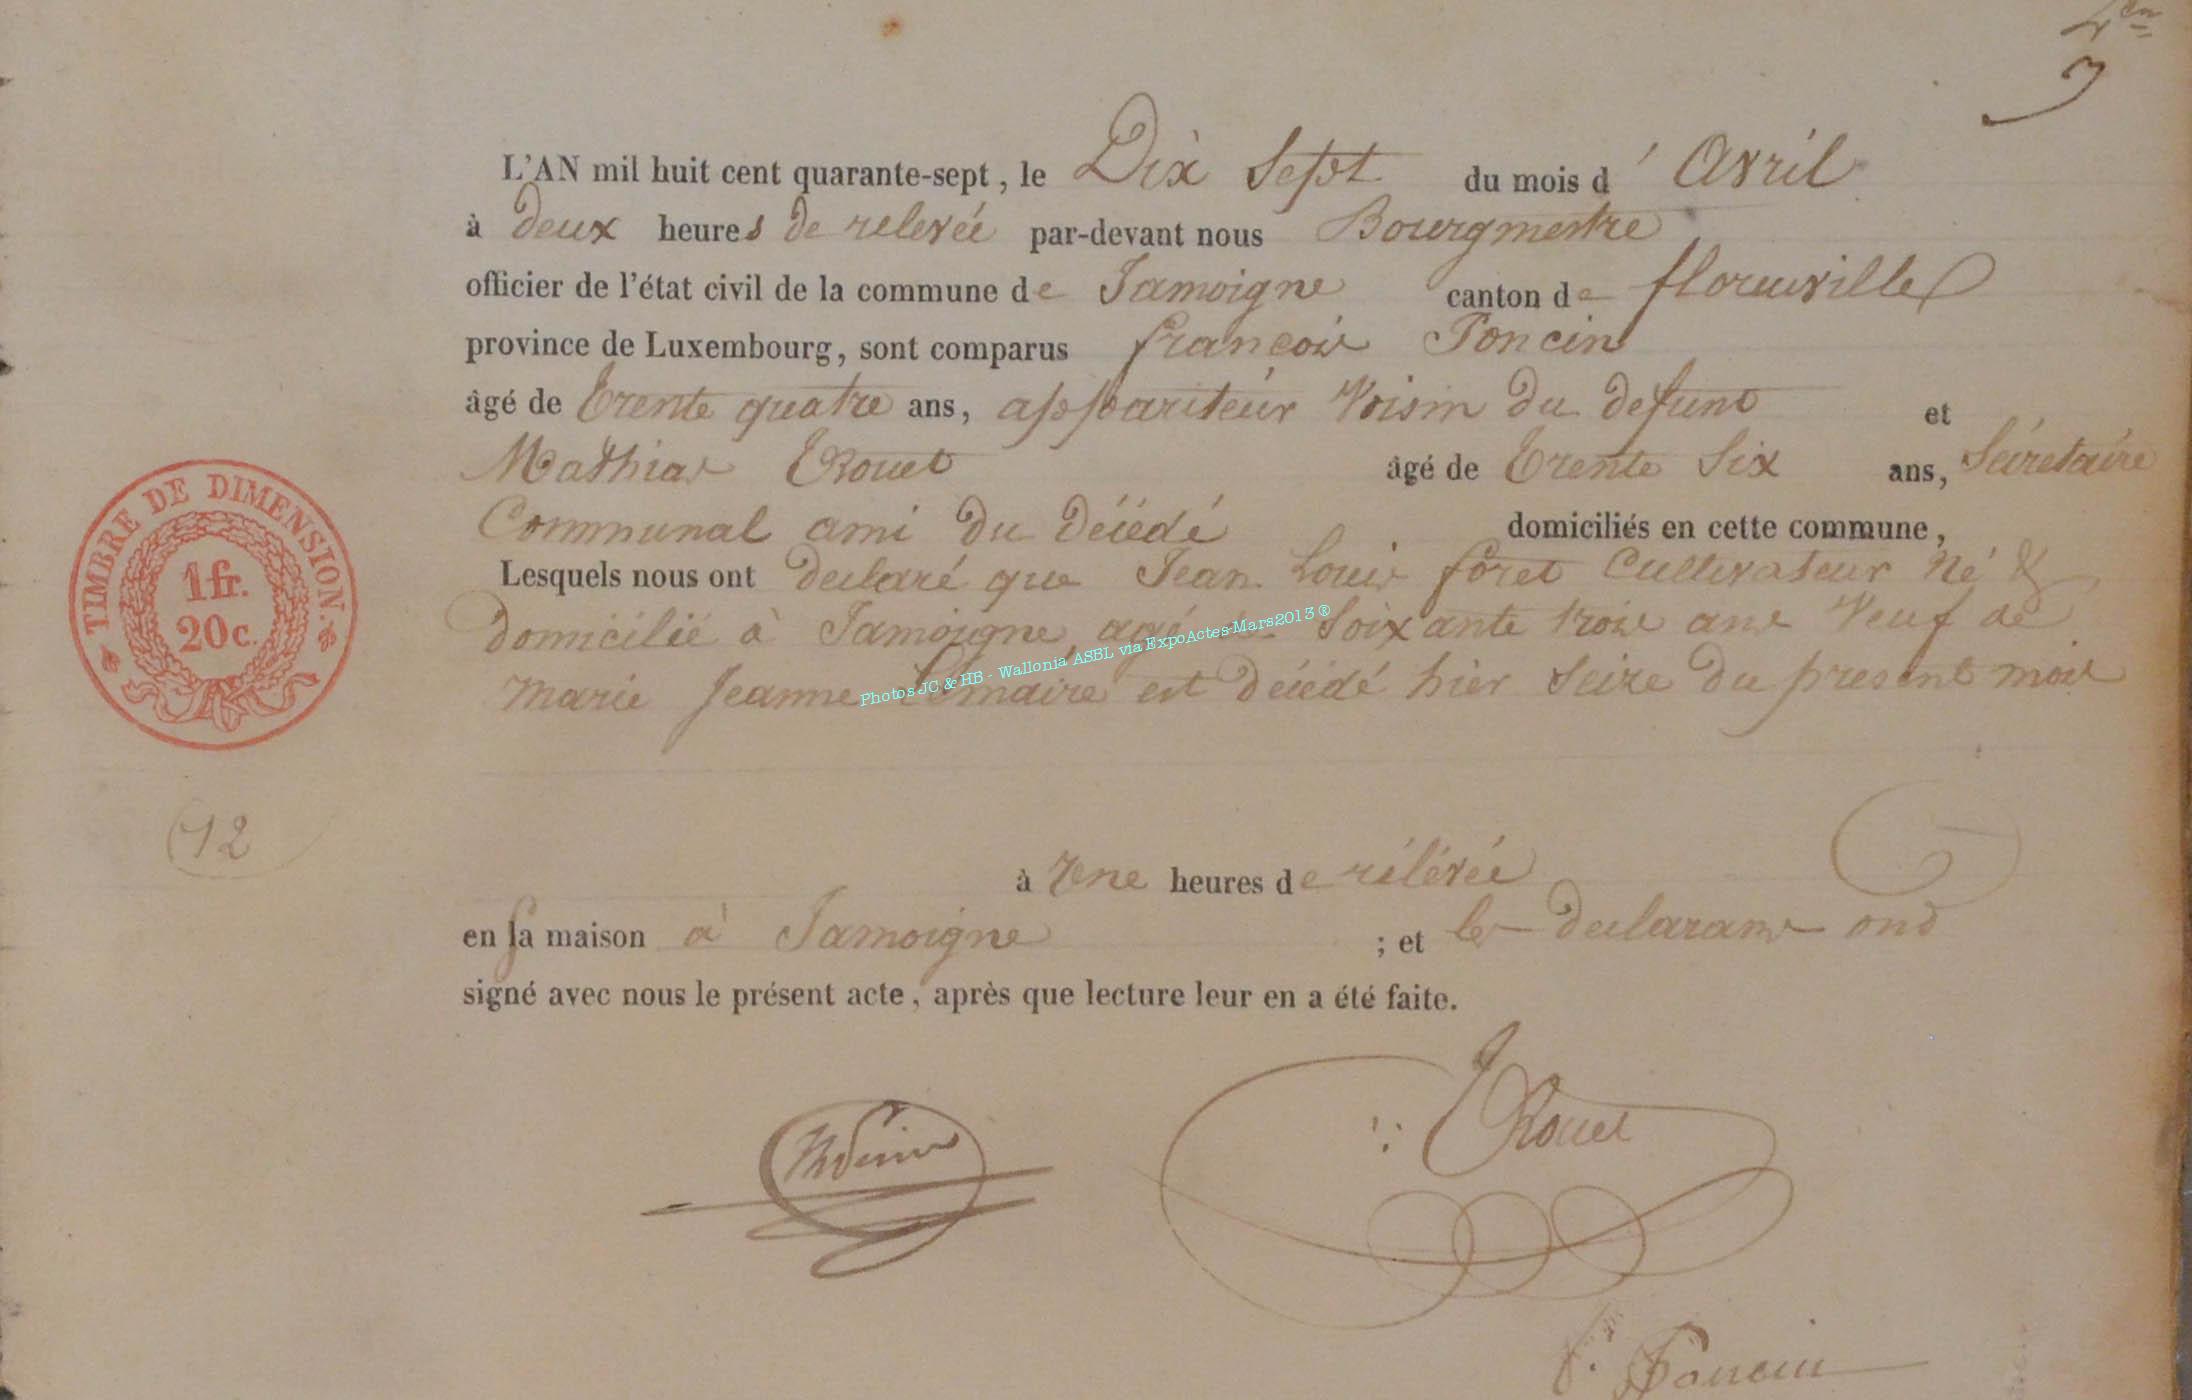 L'AN mil huit cent quarante-sept, le Dix Sept du mois d' Avril
à deux heures de relevée par-devant nous Bourgmestre
officier de l'état civil de la commune de Jamoigne canton de florenville
province de Luxembourg, sont comparus françois Poncin
âgé de trente quatre ans, appariteur Voisin du defunt et
Mathias âgé de trente Six ans, Sécretaire
Communal ami du décédé domiciliés en cette commune,
Lesquels nous ont declaré que Jean Louis fôret Cultivateur Né &
domicilié à Jamoigne, agé de Soixante trois ans Veuf de
marie Jeanne est décédé hier Seize du present mois
à Une heures de rélévée
en sa maison à Jamoigne ; et les declarans ont
signé avec nous le présent acte, après que lecture leur en a été faite.
F. Poncin
TIMBRE DE DIMENSION.
1 fr.
20 c.
12
Photos JC & HB - Wallonia ASBL via ExpoActes-Mars2013 ®